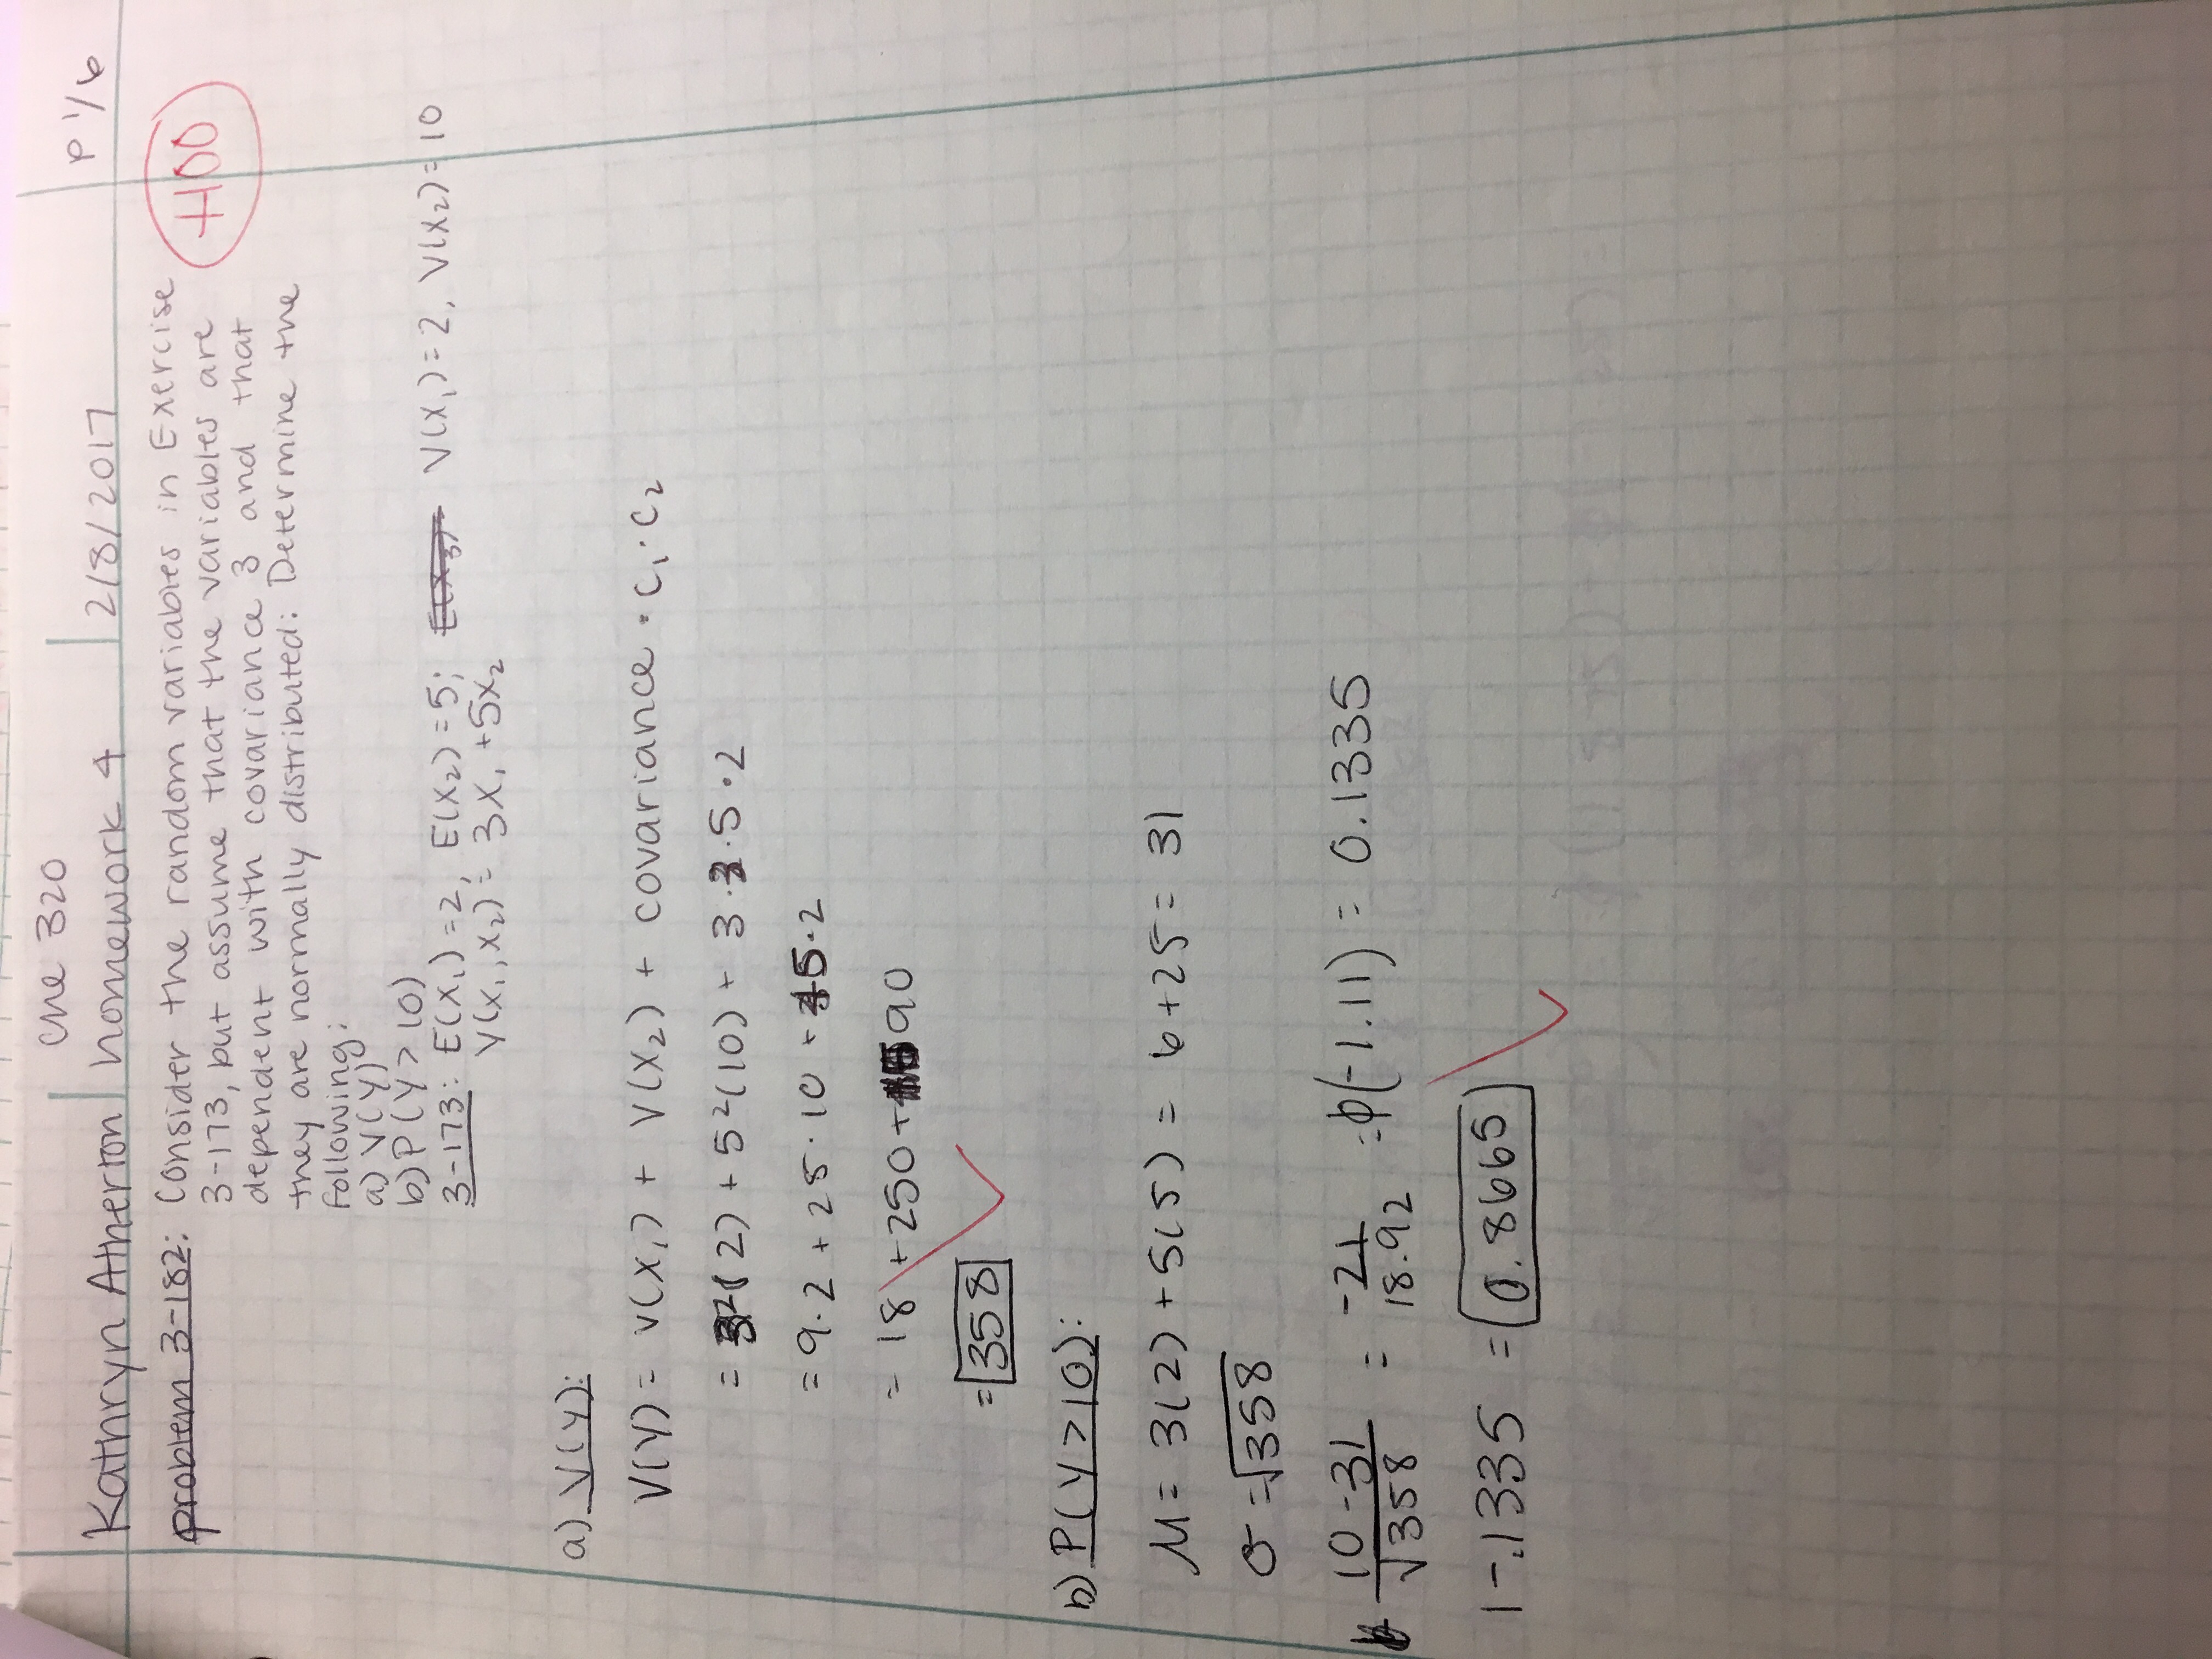 Che 320
Kathryn Atherton Homework 4 2/8/2017 P 1/6
problem 3-182: Consider the random variables in Exercise
3-173, but assume that the variables are
dependent with covariance 3 and that
they are normally distributed: Determine the
following:
a) V(Y)
b) P(Y > 10)
+100
3-173: E(X₁) = 2, E(X₂) = 5; E(X₃)= V(X₁) = 2, V(X₂) = 10
Y(X₁, X₂) = 3X₁ + 5X₂
a) V(Y):
V(Y) = V(X₁) + V(X₂) + covariance · C₁ · C₂
= 3²(2) + 5²(10) + 3 · 3 · 5 · 2
= 9·2 + 25·10 + 45·2
= 18 + 250 + 90
= 358
b) P(Y > 10):
μ = 3(2) + 5(5) = 6 + 25 = 31
σ = √358
10 - 31 / √358 = -21 / 18.92 = ϕ(-1.11) = 0.1335
1 - .1335 = 0.8665